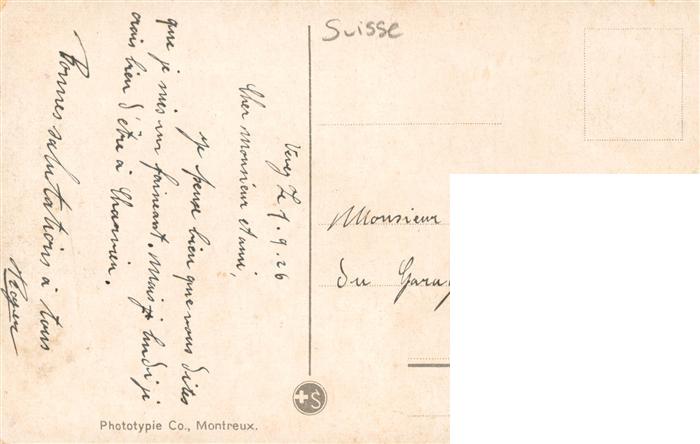 Suisse
Vevey le 7.9.26
Cher Monsieur et ami,
je pense bien que vous dites
que je suis un fainéant. Mais lundi je
crois bien d'être à Charvien.
Bonnes salutations à tous
Roger
Monsieur
du Garag
S
Phototypie Co., Montreux.